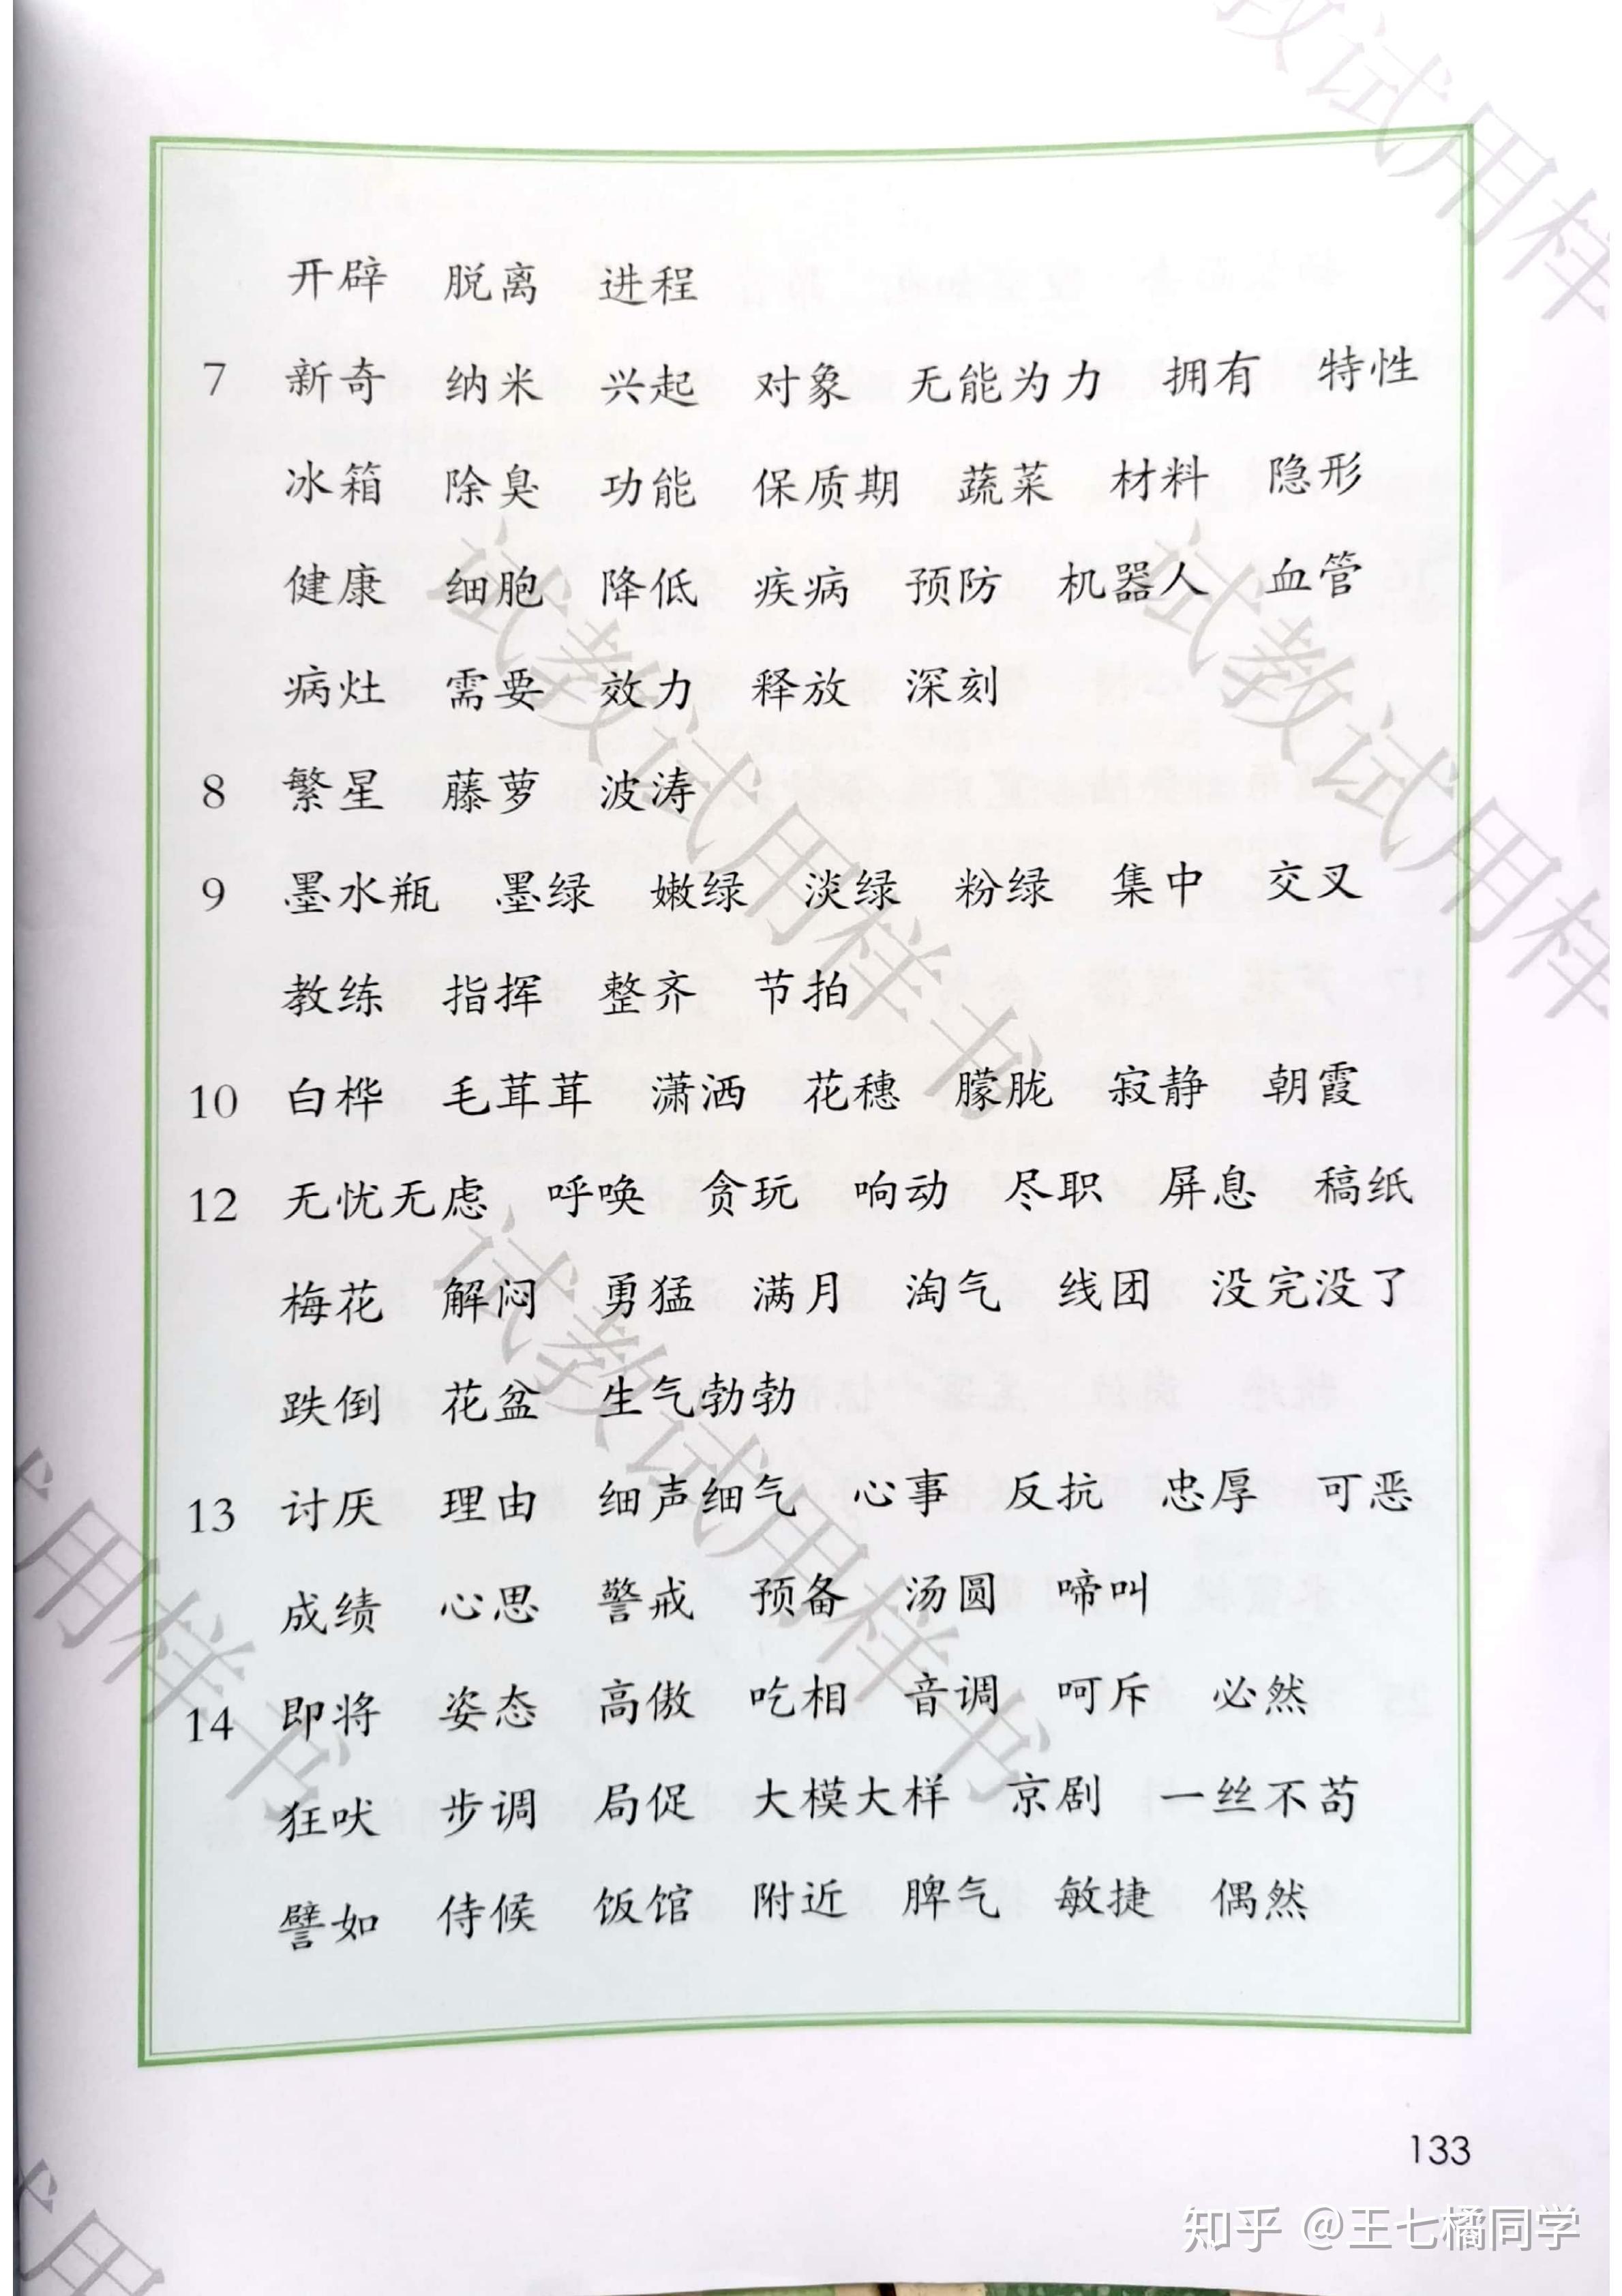 开辟 脱离 进程
7 新奇 纳米 兴起 对象 无能为力 拥有 特性
冰箱 除臭 功能 保质期 蔬菜 材料 隐形
健康 细胞 降低 疾病 预防 机器人 血管
病灶 需要 效力 释放 深刻
8 繁星 藤萝 波涛
9 墨水瓶 墨绿 嫩绿 淡绿 粉绿 集中 交叉
教练 指挥 整齐 节拍
10 白桦 毛茸茸 潇洒 花穗 朦胧 寂静 朝霞
12 无忧无虑 呼唤 贪玩 响动 尽职 屏息 稿纸
梅花 解闷 勇猛 满月 淘气 线团 没完没了
跌倒 花盆 生气勃勃
13 讨厌 理由 细声细气 心事 反抗 忠厚 可恶
成绩 心思 警戒 预备 汤圆 啼叫
14 即将 姿态 高傲 吃相 音调 呵斥 必然
狂吠 步调 局促 大模大样 京剧 一丝不苟
譬如 侍候 饭馆 附近 脾气 敏捷 偶然
133
知乎 @王七橘同学
教试用样
试教试用样书
试教试用样
试教试用样书
试用样书
试用